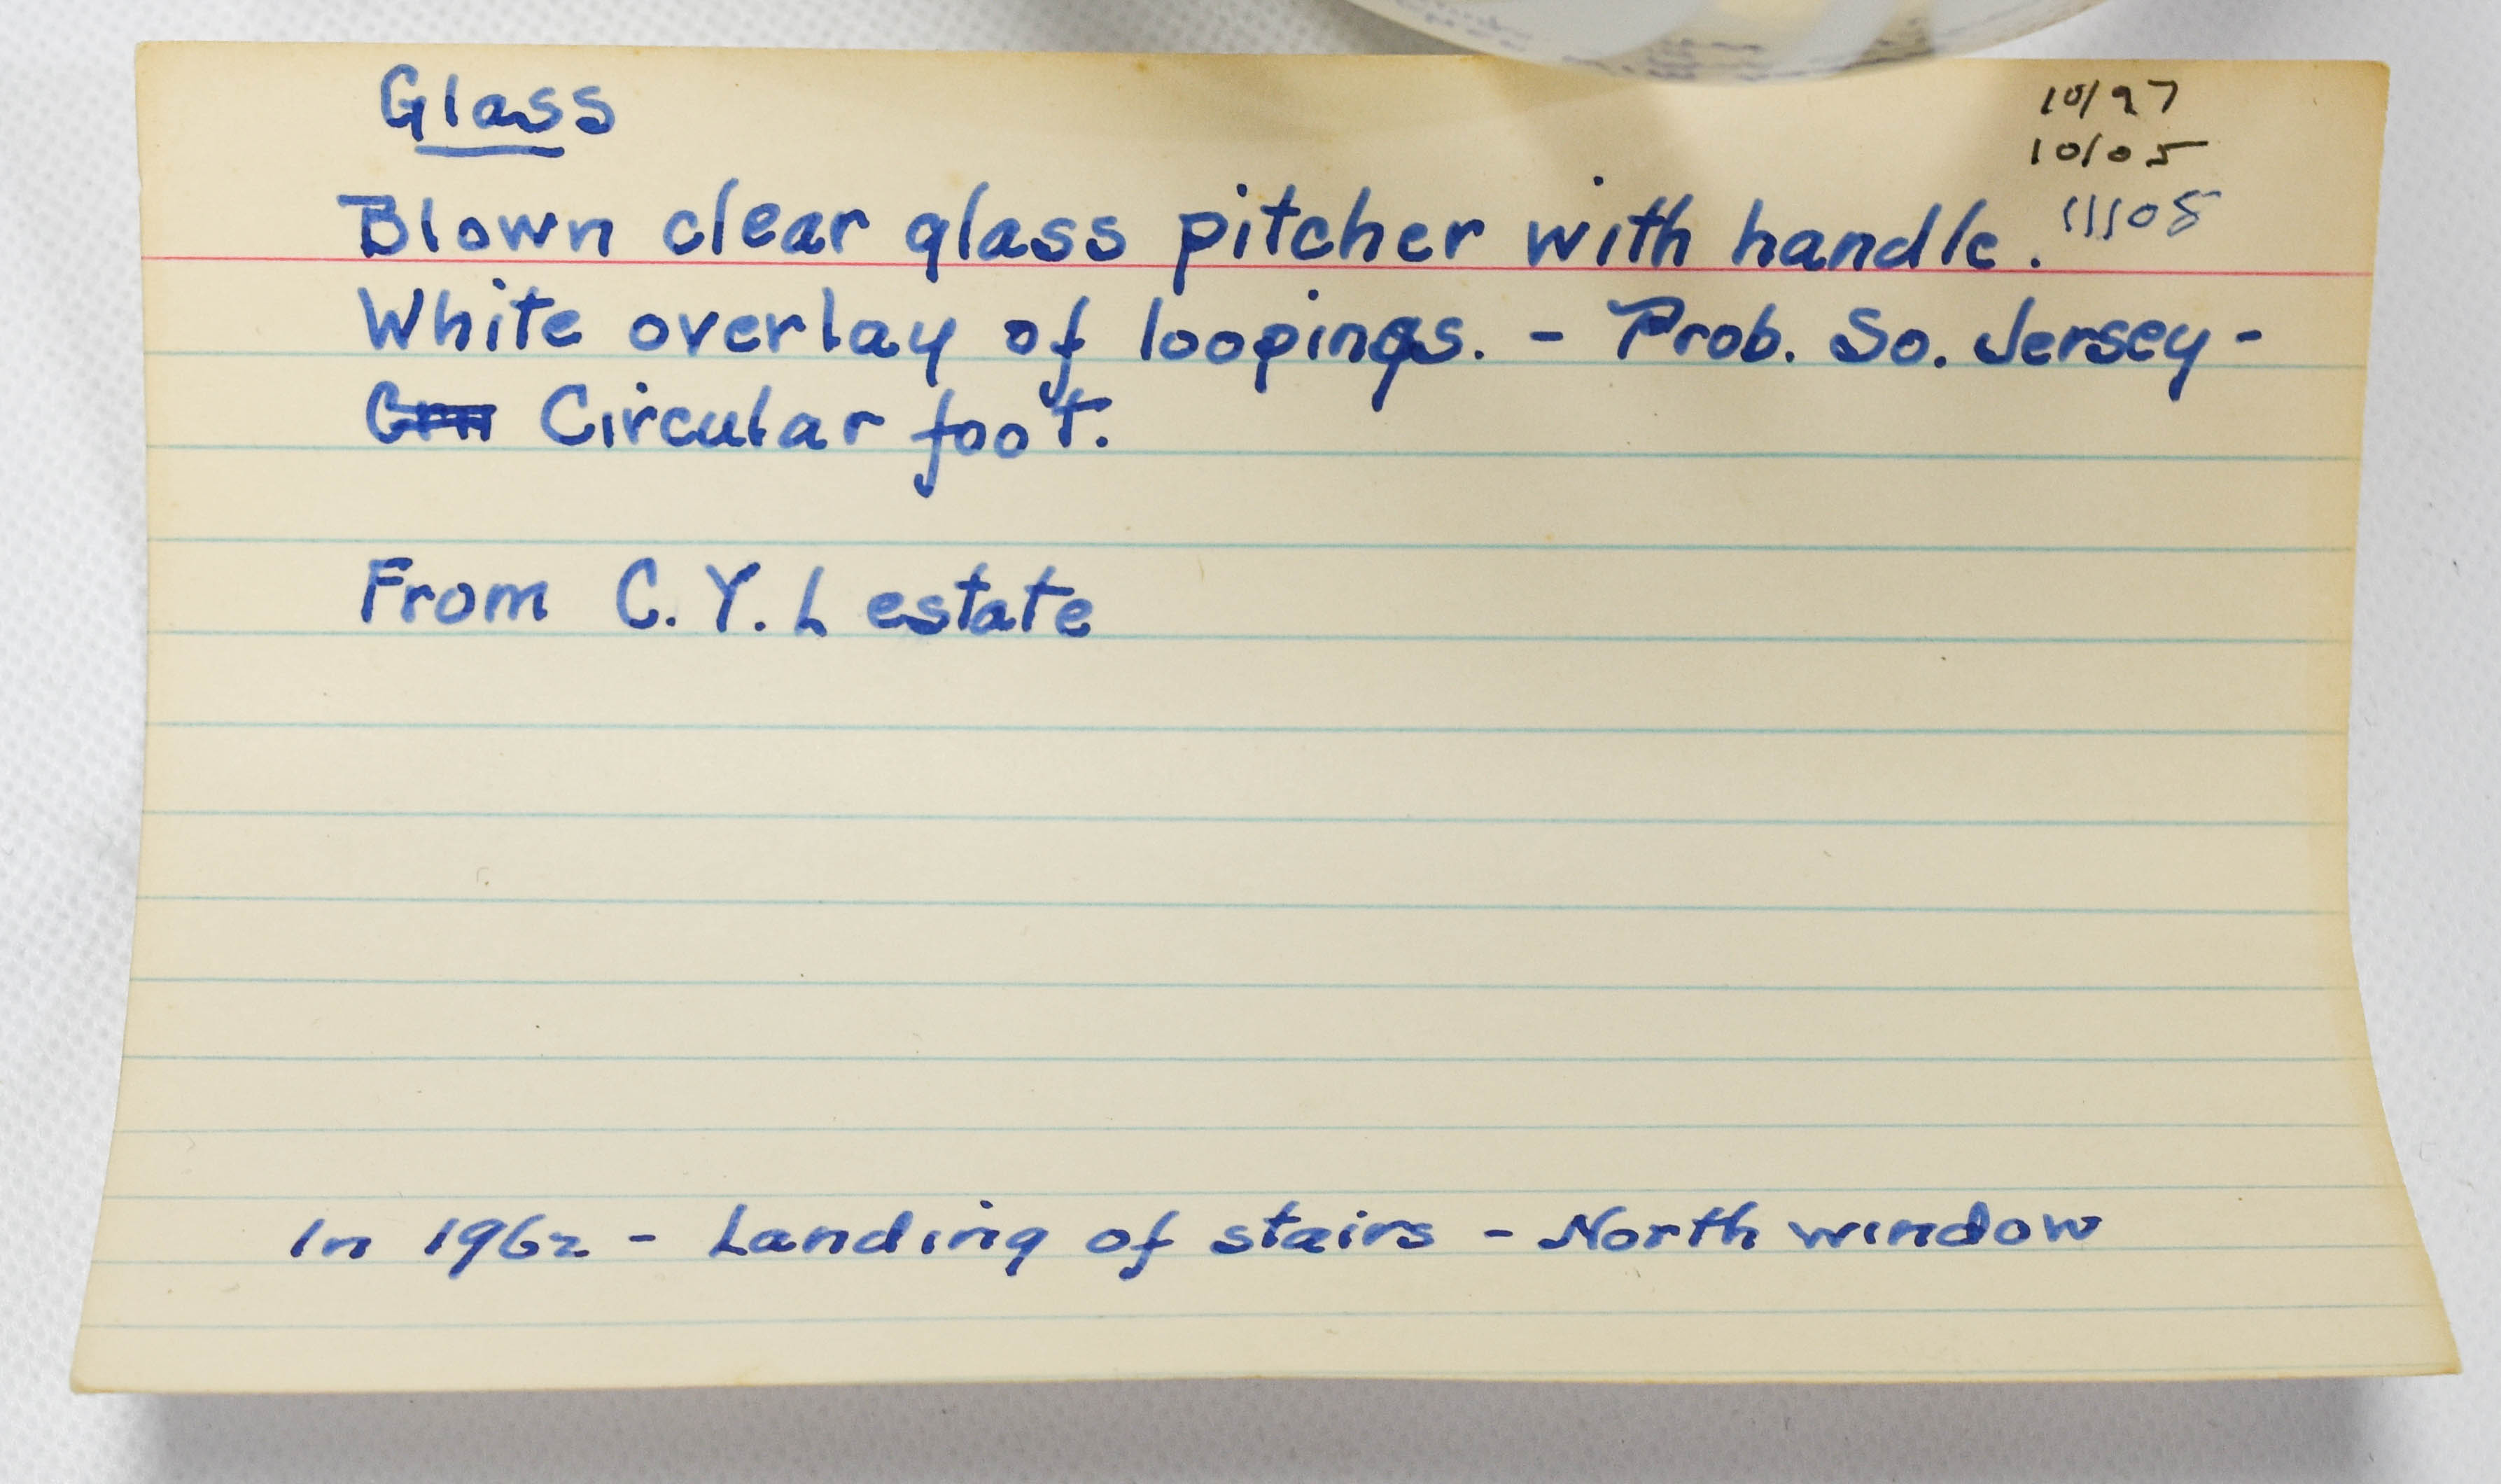 Glass
10/97
10/05
11/08
Blown clear glass pitcher with handle.
White overlay of loopings. - Prob. So. Jersey -
Circular foot.
From C. Y. L estate
In 1962 - Landing of stairs - North window